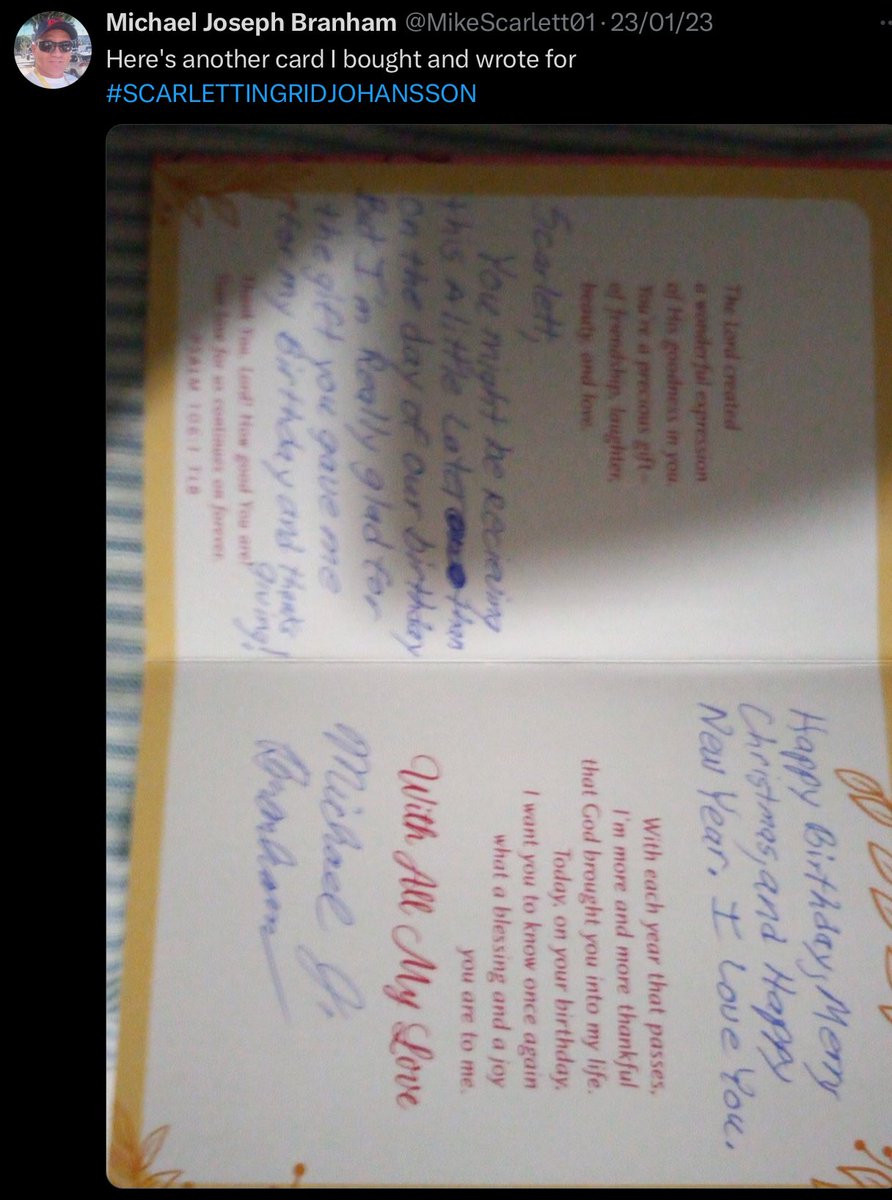 Michael Joseph Branham @MikeScarlett01 · 23/01/23
Here's another card I bought and wrote for
#SCARLETTINGRIDJOHANSSON
The Lord created
a wonderful expression
of His goodness in you
You're a precious gift–
of friendship, laughter,
beauty, and love.
Scarlett,
You might be recieving
this a little later than
on the day of our birthday
But I'm Really glad for
the gift you gave me
for my Birthday and thanks
giving!
Thank You, Lord! How good You are!
Your love for us continues on forever.
PSALM 106:1 TLB
Happy Birthday, Merry
Christmas, and Happy
New Year. I Love You.
With each year that passes,
I'm more and more thankful
that God brought you into my life.
Today, on your birthday,
I want you to know once again
what a blessing and a joy
you are to me.
With All My Love
Michael J.
Branham